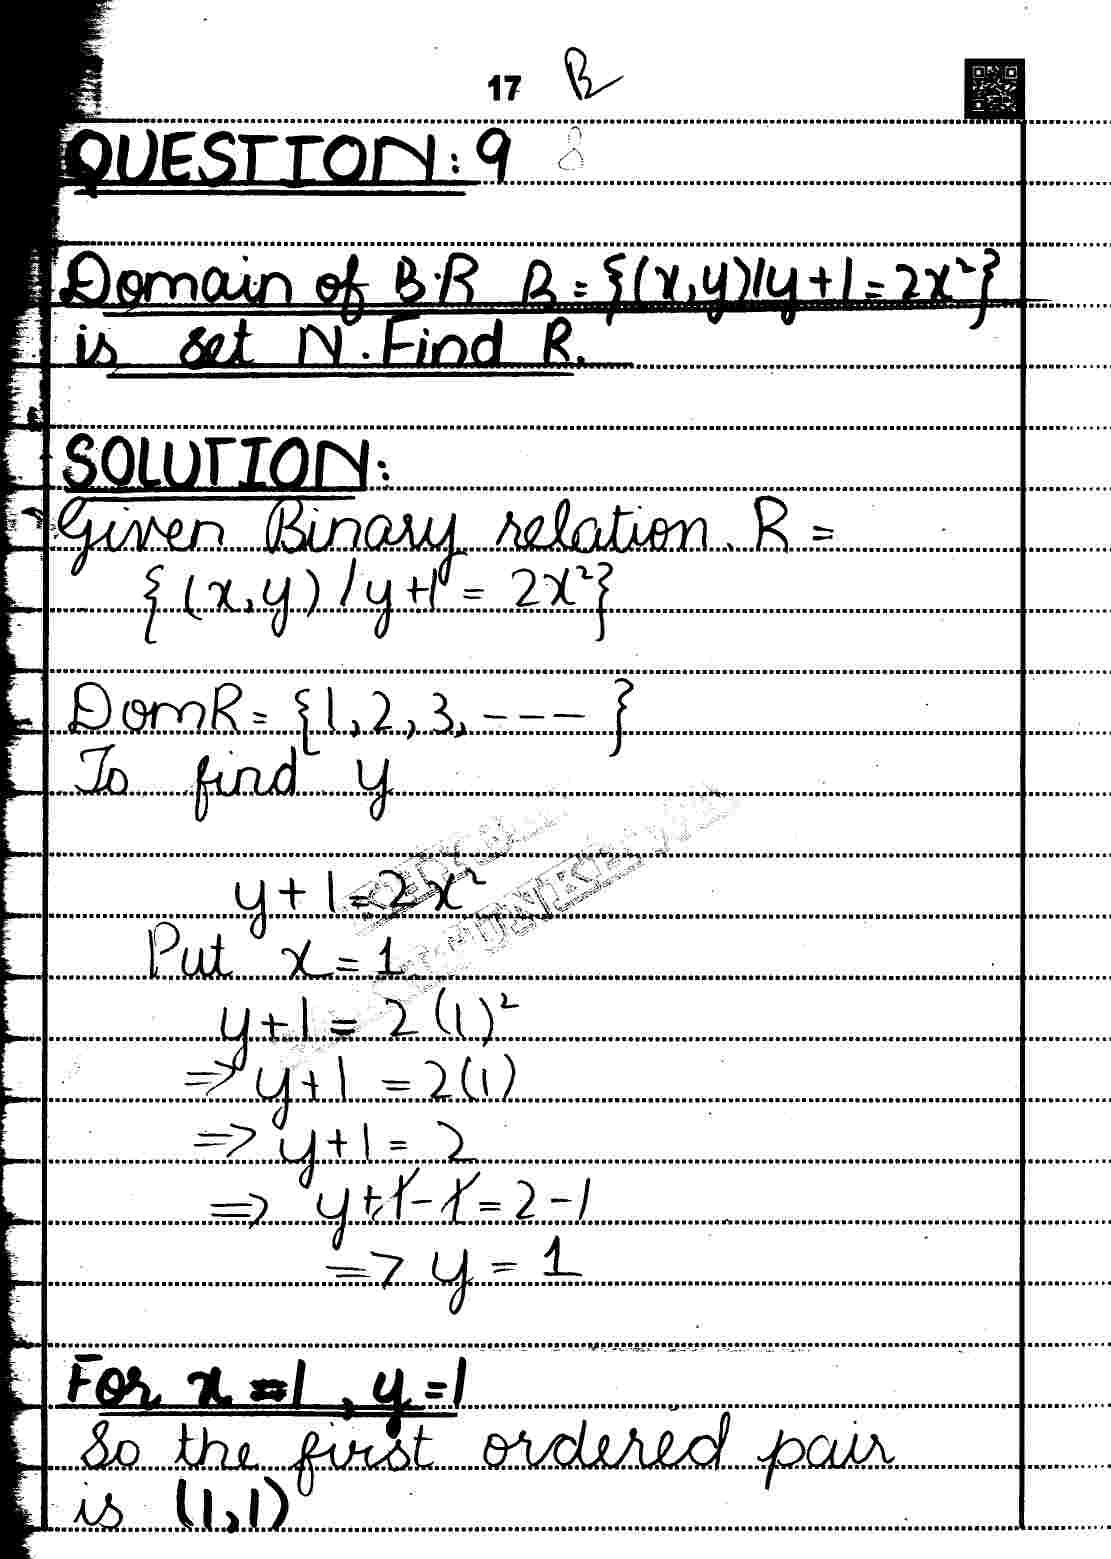 17 R
QUESTION: 9
Domain of B.R R = {(x,y)/y+1=2x²}
is set N. Find R.
SOLUTION:
Given Binary relation. R =
{(x,y)/y+1 = 2x²}
DomR = {1,2,3,----}
To find y
y+1=2x²
Put x=1
y+1= 2(1)²
=> y+1 = 2(1)
=> y+1= 2
=> y+1-1=2-1
=> y = 1
For x=1, y=1
So the first ordered pair
is (1,1)